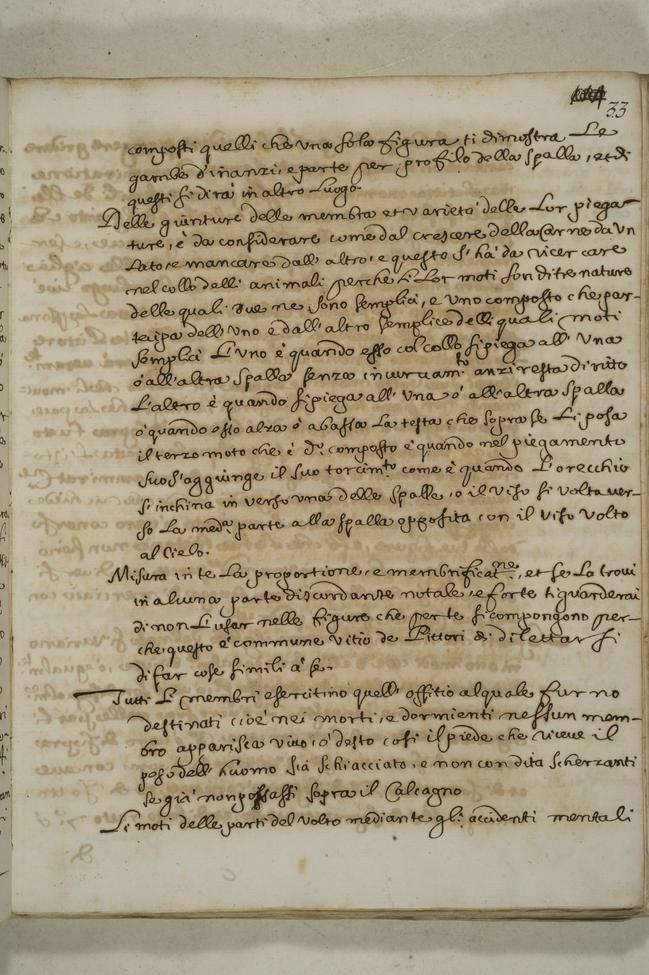 33
composti quelli che una sola figura ti dimostra Le
gambe d'inanzi, e parte per profilo della spalla, et di
questi si dirà in altro Luogo.
Delle giunture delle membra et varietà delle Lor piega-
ture, è da considerare come dal crescere della Carne da un
Lato, e mancare dall' altro, e questo s' hà da ricercare
nel collo delli animali perche i Lor moti son di tre nature
delle quali due ne sono semplici, e uno composto che par-
tecipa dell' uno e dall' altro semplice delli quali moti
semplici L'uno è quando esso col collo si piega all' una
ò all' altra spalla senza incurvam.to anzi resta diritto
L'altro è quando si piega all' una ò all' altra spalla
ò quando esso alza ò abassa La testa che sopra se Li posa
il terzo moto che è d.o composto è quando nel piegamento
suo s'aggiunge il suo torcim.to come è quando L'orecchio
s' inchina in verso una delle spalle, o il viso si volta ver-
so La med.a parte alla spalla opposita con il viso volto
al Cielo.
Misura in te La proportione, e membrificat.ne, et se La trovi
in alcuna parte discordante notale, e forte ti guarderai
di non L'usar nelle figure che per te si compongono per-
che questo è commune vitio de Pittori di dilettarsi
di far cose simili à se.
Tutti Li membri esercitino quell' offitio al quale furno
destinati cioè nei morti, e dormienti nessun mem-
bro apparisca vivo, ò desto cosi il piede che riceve il
peso dell' huomo sia schiacciato, e non con dita scherzanti
se già non posassi sopra il Calcagno
Li moti delle parti del volto mediante gl.i accidenti mentali